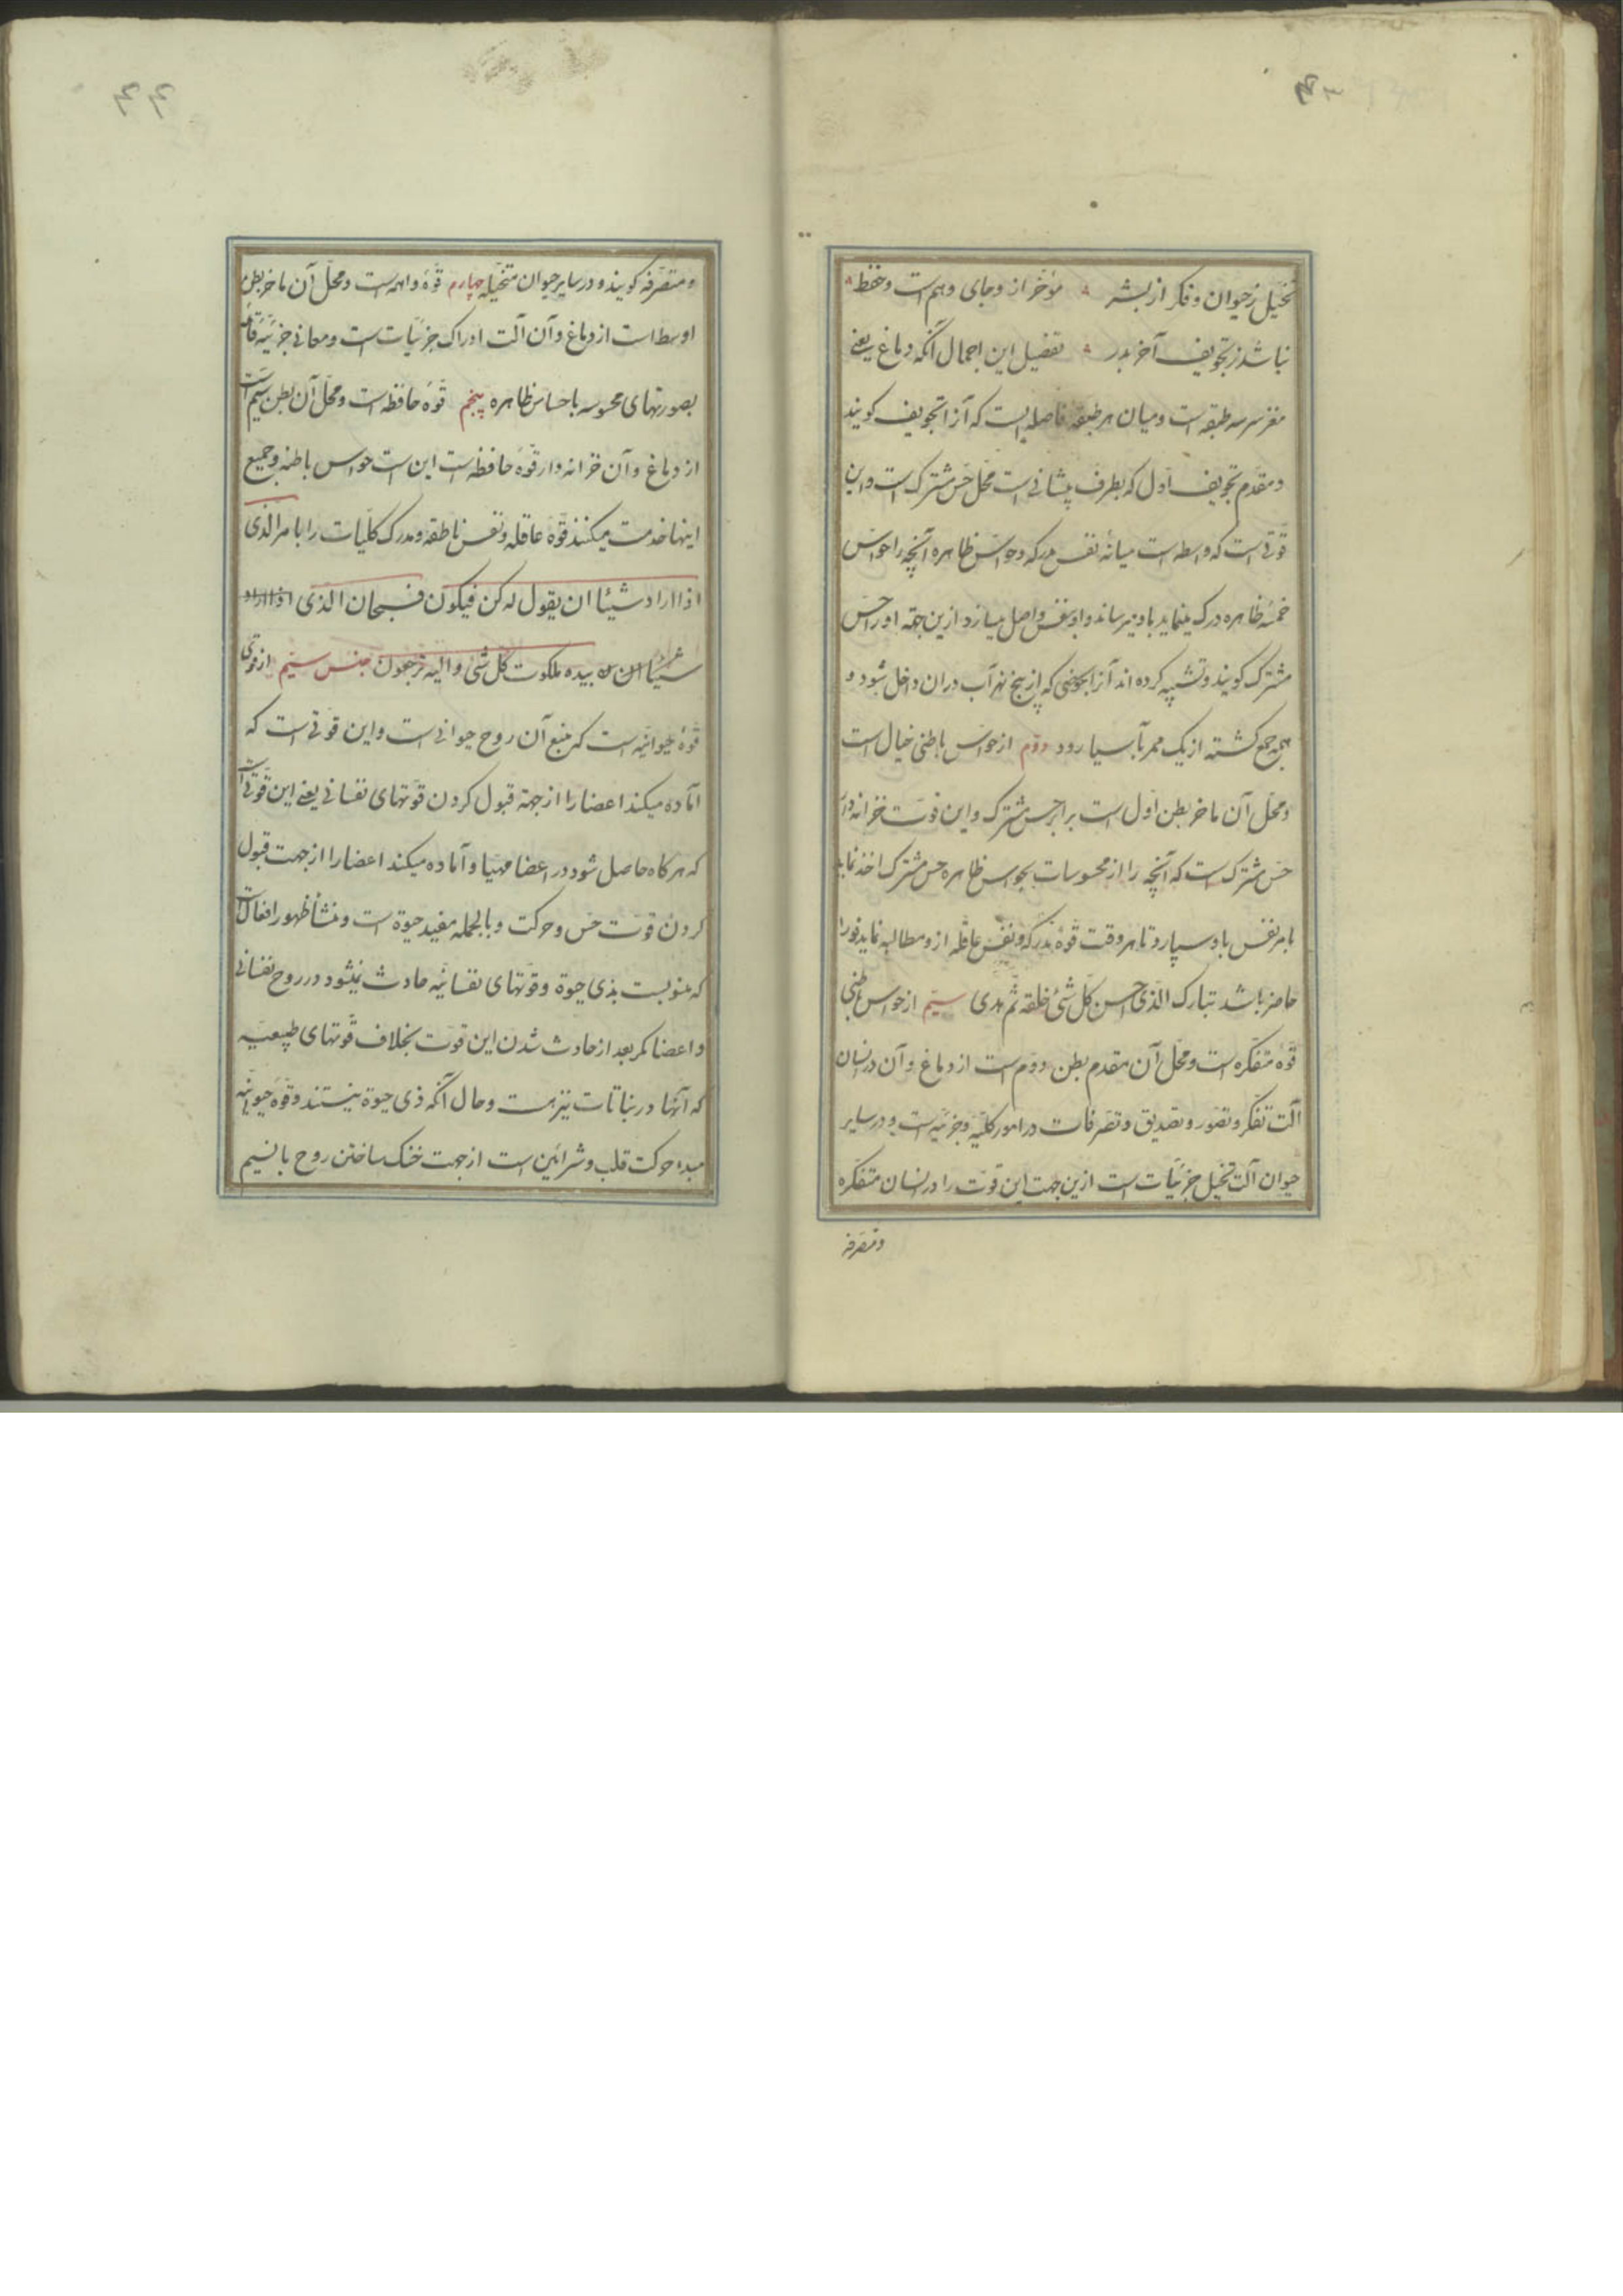 ۴۳
تخیل ز حیوان و فکر از بشر ؞ مؤخر ازو جای وهم است و حفظ ؞
نباشد ز تجویف آخر بدر ؞ تفصیل این اجمال آنکه دماغ یعنی
مغز سر سه طبقه است و میان هر طبقه فاصله ایست که آنرا تجویف کویند
و مقدم تجویف اول که بطرف پیشانی است محل حس مشترک است و این
قوتی است که واسطه است میانهٔ نفس مدرکه و حواس ظاهره آنچه را حواس
خمسهٔ ظاهره درک مینماید باو میرساند و او بنفس واصل میسازد ازین جهة او را حس
مشترک کویند و تشبیه کرده اند آنرا بحوضی که از پنج نهر آب دران داخل شود و
همه جمع کشته از یک ممر بآسیا رود دوم از حواس باطنی خیال است
و محل آن ماخر بطن اول است برابر حس مشترک و این قوت خزانه دار
حس مشترک است که آنچه را از محسوسات بحواس ظاهره حس مشترک اخذ نماید
بامر نفس باو سپارد تا هر وقت قوهٔ مدرکه و نفس عاقله ازو مطالبه نماید فورا
حاضر باشد تبارک الذی احسن کل شئ خلقه ثم هدی سیم از حواس باطنی
قوهٔ متفکره است و محل آن مقدم بطن دوم است از دماغ و آن در انسان
آلت تفکر و تصور و تصدیق و تصرفات در امور کلیه و جزئیه است و در سایر
حیوان آلت تخیل جزئیات است ازین جهت این قوت را در انسان متفکره
و متصرفه
۴۴
و متصرفه کویند و در سایر حیوان متخیله چهارم قوهٔ واهمه است و محل آن ماخر بطن
اوسط است از دماغ و آن آلت ادراک جزئیات است و معانی جزئیهٔ قائمه
بصورتهای محسوسه باحساس ظاهره پنجم قوهٔ حافظه است و محل آن بطن سیم است
از دماغ و آن خزانه دار قوهٔ حافظه است این است حواس باطنه و جمیع
اینها خدمت میکنند قوهٔ عاقله و نفس ناطقه و مدرک کلیات را بامر الذی
اذا اراد شیئا ان یقول له کن فیکون فسبحان الذی اذا اراد
شیئا ان بیده ملکوت کل شئ و الیه ترجعون جنس سیم از قوی
قوهٔ حیوانیه است که منبع آن روح حیوانی است و این قوتی است که
آماده میکند اعضا را از جهة قبول کردن قوتهای نفسانی یعنی این قوتی است
که هرکاه حاصل شود در اعضا مهیا و آماده میکند اعضا را از جهت قبول
کردن قوت حس و حرکت و بالجمله مفید حیوة است و منشأ ظهور افعال است
که منوبست بذی حیوة و قوتهای نفسانیه حادث نمیشود در روح نفسانی
و اعضا مکر بعد از حادث شدن این قوت بخلاف قوتهای طبیعیه
که آنها در نباتات نیز هست و حال آنکه ذی حیوة نیستند و قوهٔ حیوانیه
مبدء حرکت قلب و شرائین است از جهت خنک ساختن روح بانسیم